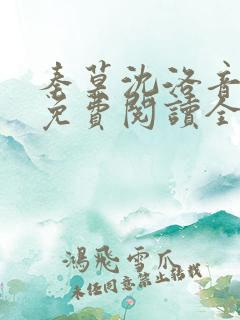 秦墓沈洛音
免費閱讀全
鴻飛雪爪
未经同意禁止转载